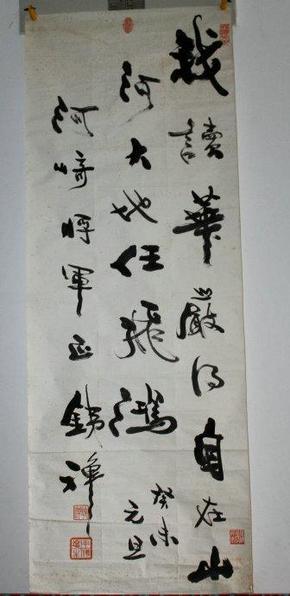 我讀華嚴得自在山
河大地任飛鴻
癸未
元旦
河崎將軍正鐵禪